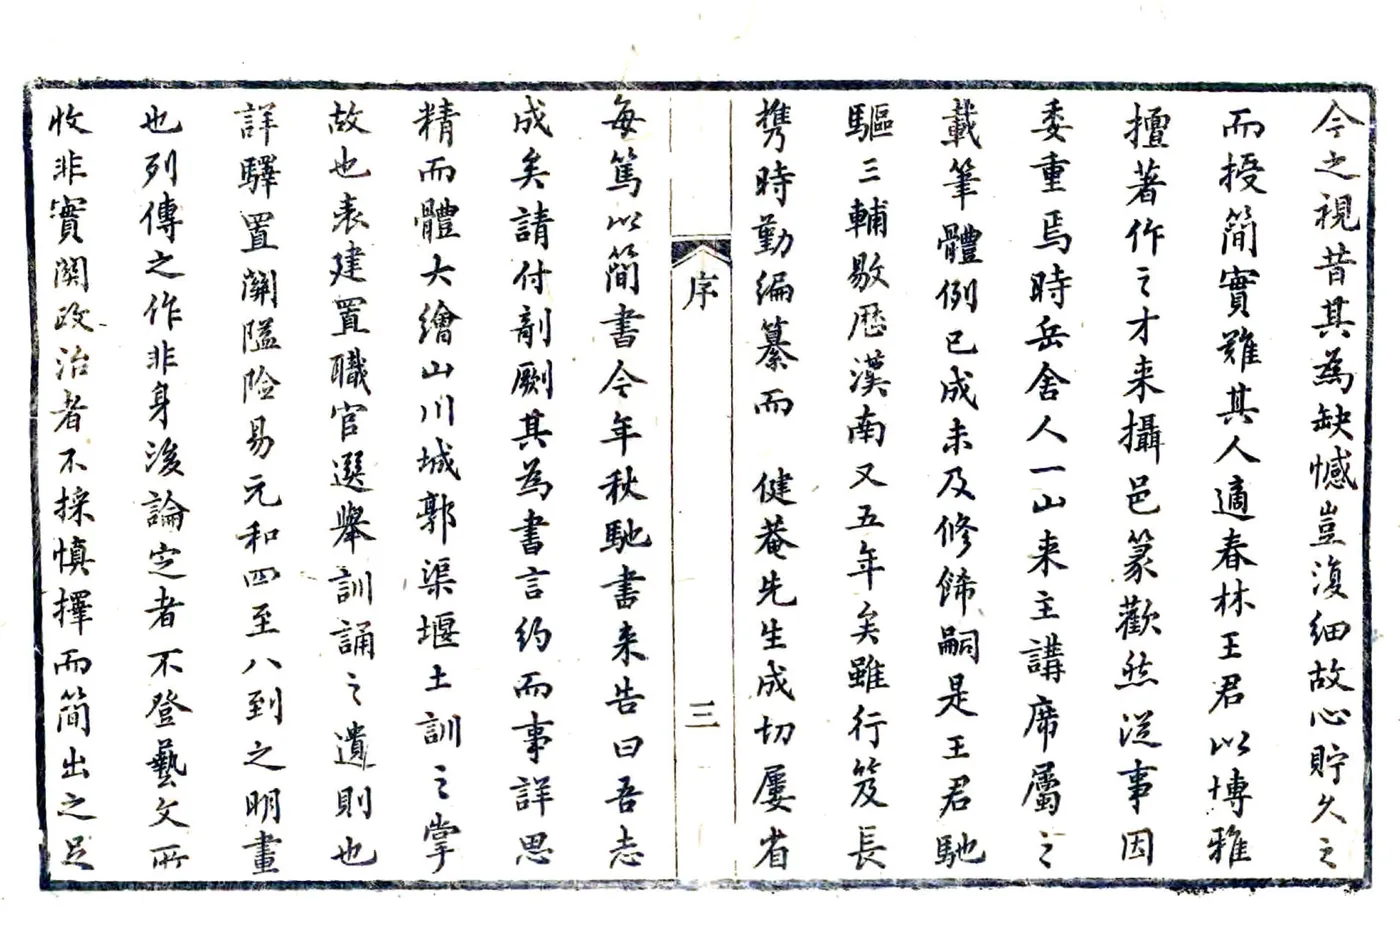 今之視昔其為缺憾豈復細故心貯久之
而授簡實難其人適春林王君以博雅
擅著作之才来攝邑篆歡然從事因
委重焉時岳舍人一山来主講席屬之
載筆體例已成未及修飾嗣是王君馳
驅三輔敭歷漢南又五年矣雖行笈長
携時勤編纂而　健菴先生成切屢省
序
三
每篤以簡書今年秋馳書来告曰吾志
成矣請付剞劂其為書言約而事詳思
精而體大繪山川城郭渠堰土訓之掌
故也表建置職官選舉訓誦之遺則也
詳驛置關隘險易元和四至八到之明畫
也列傳之作非身後論定者不登藝文所
收非實關政治者不採慎擇而簡出之足